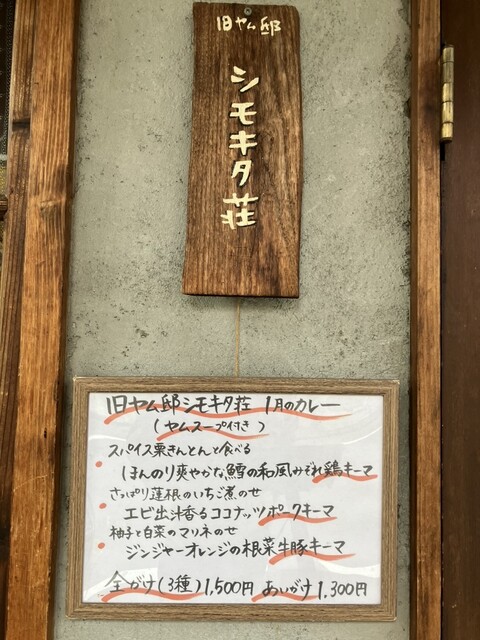 旧ヤム邸
シモキタ荘
旧ヤム邸シモキタ荘 1月のカレー
(ヤムスープ付き)
スパイス栗きんとんと食べる
ほんのり爽やかな鱈の和風みぞれ鶏キーマ
さっぱり蓮根のいちご煮のせ
エビ出汁香るココナッツポークキーマ
柚子と白菜のマリネのせ
ジンジャーオレンジの根菜牛豚キーマ
全がけ(3種)1,500円 あいがけ1,300円